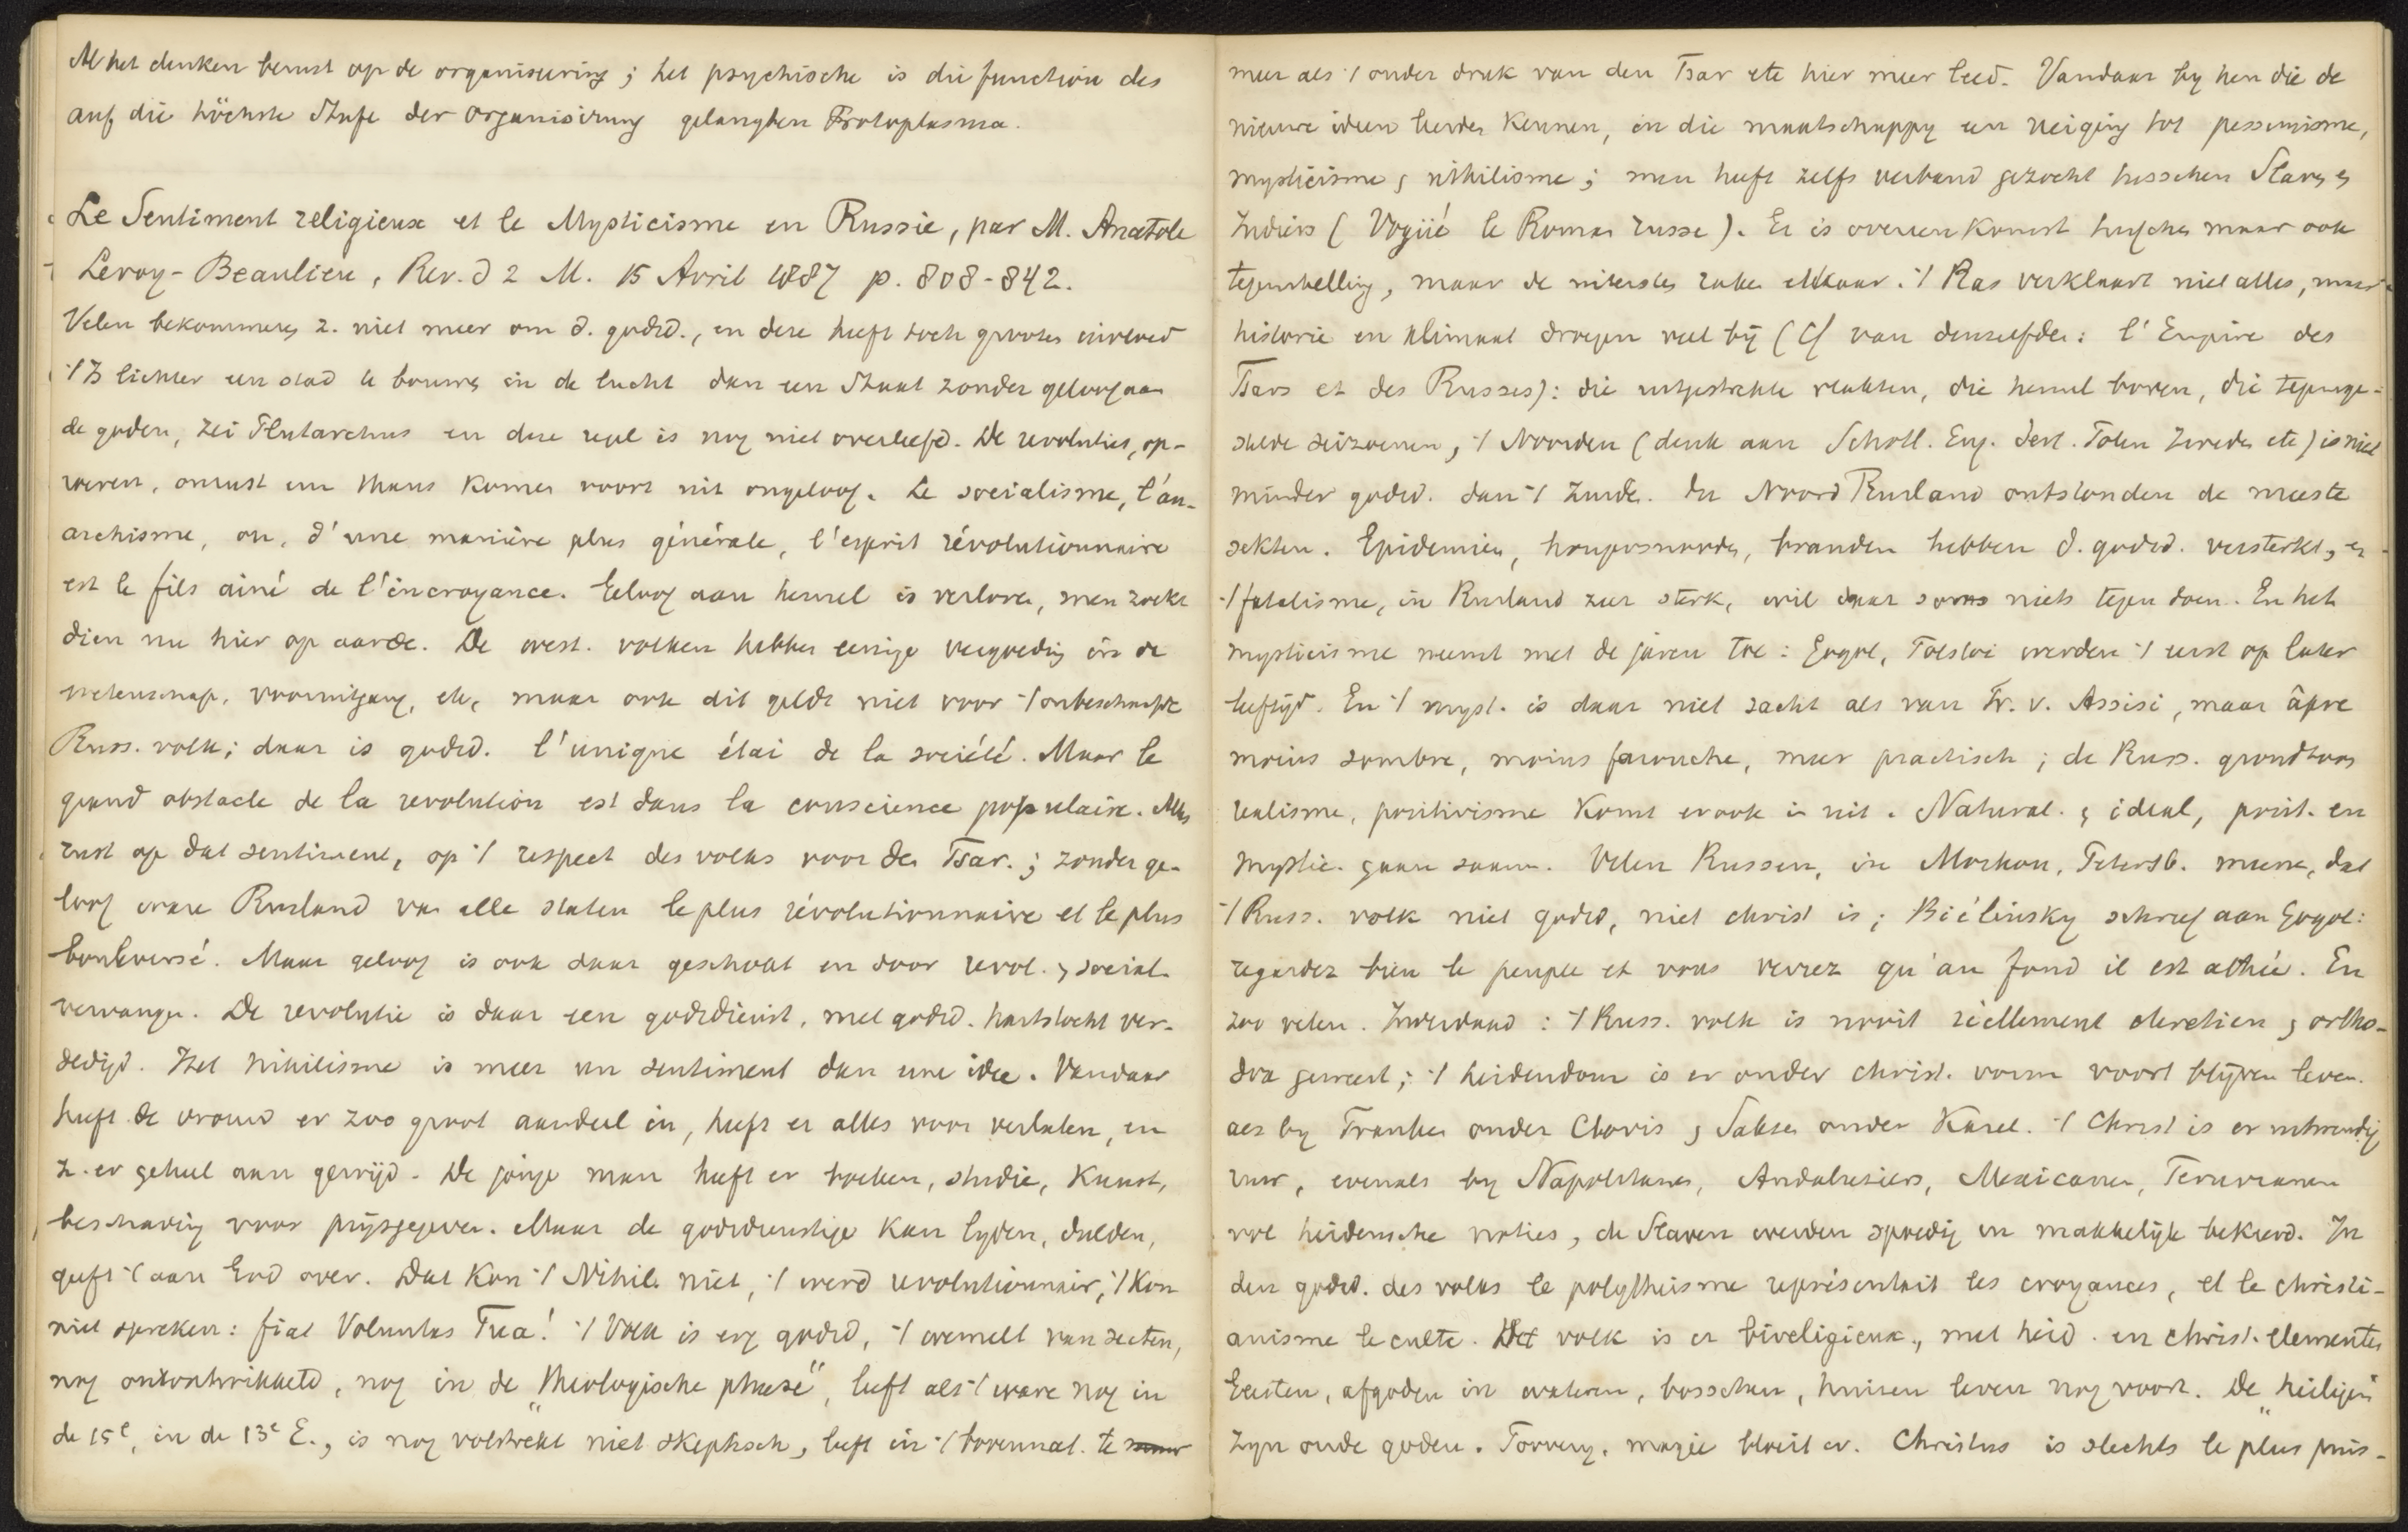 Al het denken berust op de organisering; het psychische is die function des
auf die höchste Stufe der Organisirung gelangten Protoplasma.
Le Sentiment religieux et le Mysticisme en Russie, par M. Anatole
Leroy-Beaulieu, Rev. d 2 M. 15 Avril 1887 p. 808-842.
Velen bekommeren z. niet meer om d. godsd., en deze heeft toch grooten invloed
't Is lichter een stad te bouwen in de lucht dan een Staat zonder geloof aan
de goden, zei Plutarchus en deze regel is nog niet overleefd. De revoluties, op-
roeren, onrust een thans komen voort uit ongeloof. Le socialisme, l'an-
archisme, ou, d'une manière plus générale, l'esprit révolutionnaire
est le fils ainé de l'incroyance. Geloof aan hemel is verloren, men zoekt
dien nu hier op aarde. De west. volken hebben eenige vergoeding in de
wetenschap, vooruitgang, etc, maar ook dit geldt niet voor 't onbeschaafde
Russ. volk; daar is godsd. l'unique étai de la société. Maar le
grand obstacle de la revolution est dans la conscience populaire. Alles
rust op dat sentiment, op 't respect des volks voor den Tsar.; zonder ge-
loof ware Rusland van alle staten le plus révolutionnaire et le plus
bouleversé. Maar geloof is ook daar geschokt en door revol. & social.
vervangen. De revolutie is daar een godsdienst, met godsd. hartstocht ver-
dedigd. Het nihilisme is meer un sentiment dan une idee. Vandaar
heeft de vrouw er zoo groot aandeel in, heeft er alles voor verlaten, en
z. er geheel aan gewijd. De jonge man heeft er boeken, studie, kunst,
beschaving voor prijsgegeven. Maar de godsdienstige kan lyden, dulden,
geeft 't aan God over. Dat kon 't Nihil. niet, 't werd revolutionair, 't kon
niet spreken: fiat Voluntas Tua! 't Volk is erg godsd, 't wemelt van secten,
nog onontwikkeld, nog in de "theologische phase", leeft als 't ware nog in
de 15e, in de 13e E., is nog volstrekt niet skeptisch, leeft in 't bovennat. te
meer als 't onder druk van den Tsar etc hier meer leed. Vandaar by hen die de
nieuwe ideen leerden kennen, in die maatschappy een neiging tot pessimisme,
mysticisme & nihilisme; men heeft zelfs verband gezocht tusschen Slaven &
Indiers (Vogüé le Roman russe). Er is overeenkomst tusschen maar ook
tegenstelling, maar de uitersten raken elkaar. 't Ras verklaart niet alles, maar
historie en klimaat dragen veel bij (Cf van denzelfden: l'Empire des
Tsars et des Russes): die uitgestrekte vlakten, die hemel boven, die tegenge-
stelde seizoenen, 't Noorden (denk aan Schotl. Eng. Ierl. Polen Zweden etc) is niet
minder godsd. dan 't Zuiden. In Noord Rusland ontstonden de meeste
sekten. Epidemien, hongersnooden, branden hebben d. godsd. versterkt, en
't fatalisme, in Rusland zeer sterk, wil daar soms niets tegen doen. En het
mysticisme neemt met de jaren toe: Gogol, Tolstoi werden 't eerst op later
leeftijd. En 't myst. is daar niet zacht als van Fr. v. Assisi, maar âpre
moins sombre, moins farouche, meer practisch; de Russ. grondtoon
realisme, positivisme komt er ook in uit. Natural. & ideal, posit. en
mystic. gaan saam. Velen Russen, in Moskou, Petersb. meenen, dat
't Russ. volk niet godsd, niet christ is; Biélinsky schreef aan Gogol:
regardez bien le peuple et vous verrez qu'au fond il est athée. En
zoo velen. Inderdaad: 't Russ. volk is nooit réellement chretien & ortho-
dox geweest; 't heidendom is er onder christ. vorm voort blijven leven.
als by Franken onder Clovis & Saksen onder Karel. 't Christ is er uitwendig
voor, evenals by Napolitanen, Andalusiers, Mexicanen, Peruvianen
vol heidensche noties, de Slaven werden spoedig en makkelijk bekeerd. In
den godsd. des volks le polytheisme représentait les croyances, et le christi-
anisme le culte. Het volk is er bireligieux, met heid. en christ. elementen
Geesten, afgoden in wateren, bosschen, huizen leven nog voort. De "heiligen"
zijn oude goden. Toovery, magie bloeit er. Christus is slechts le plus puis-